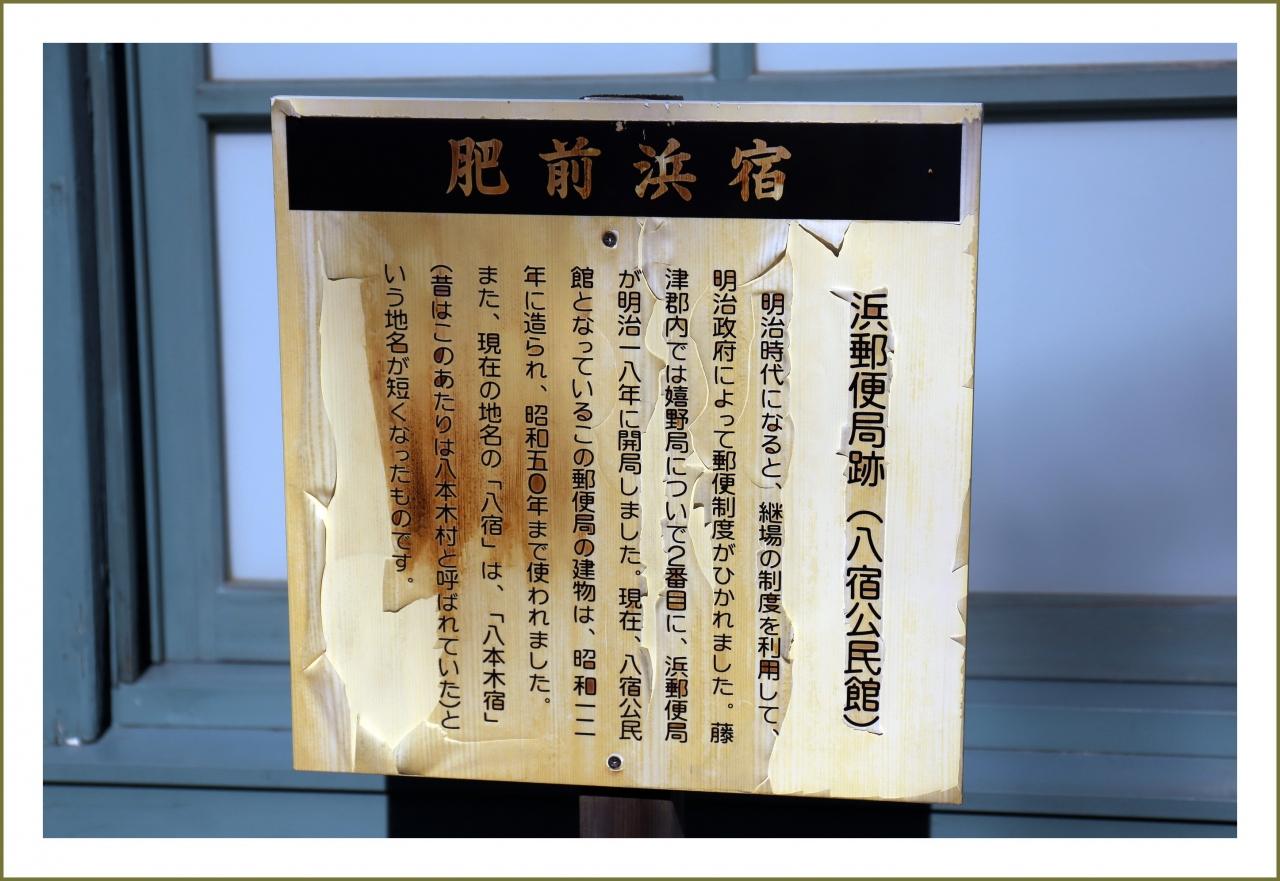 肥前浜宿
浜郵便局跡（八宿公民館）
明治時代になると、継場の制度を利用して、
明治政府によって郵便制度がひかれました。藤
津郡内では嬉野局についで2番目に、浜郵便局
が明治一八年に開局しました。現在、八宿公民
館となっているこの郵便局の建物は、昭和一二
年に造られ、昭和五〇年まで使われました。
また、現在の地名の「八宿」は、「八本木宿」
（昔はこのあたりは八本木村と呼ばれていた）と
いう地名が短くなったものです。